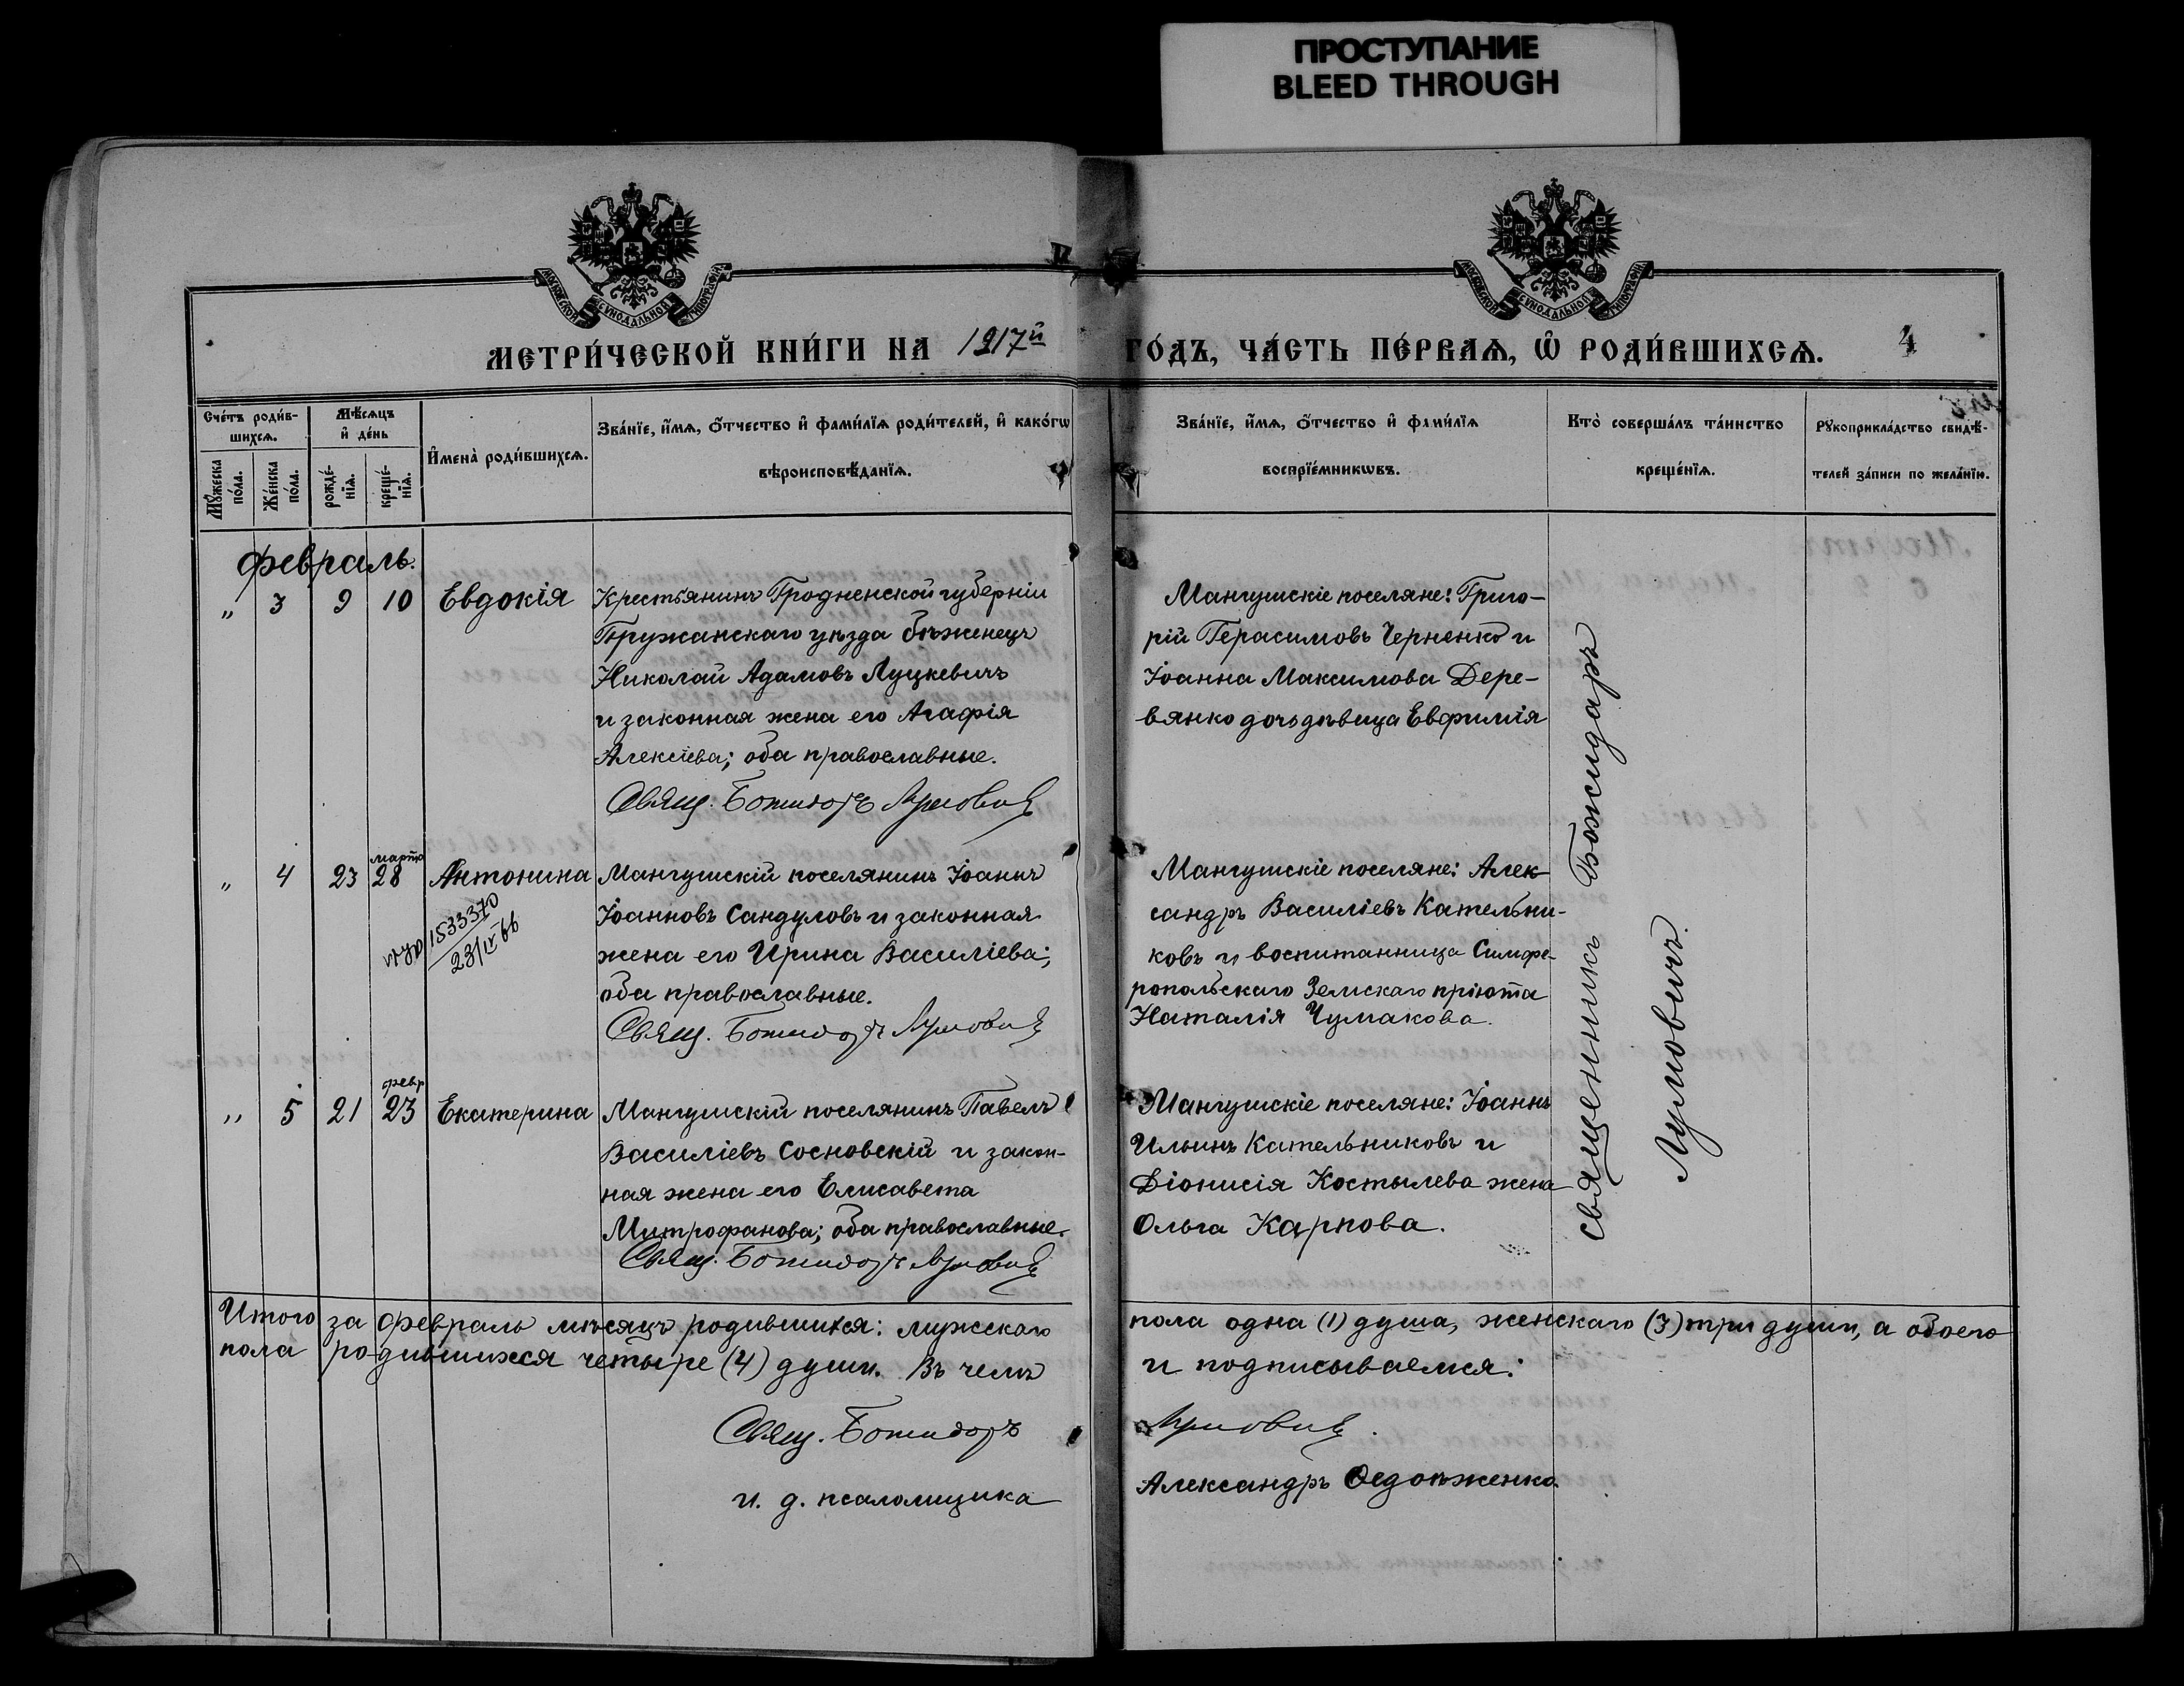 ПРОСТУПАНИЕ
BLEED THROUGH
МОСКОВСКОЙ СѴНОДАЛЬНОЙ ТИПОГРАФІИ
МОСКОВСКОЙ СѴНОДАЛЬНОЙ ТИПОГРАФІИ
МЕТРИ́ЧЕСКОЙ КНИ́ГИ НА 1917й ГО́ДЪ, ЧА́СТЬ ПЕ́РВАѦ, Ѽ РОДИ́ВШИХСѦ. 4
Сче́тъ роди́в-
шихсѧ.
Мꙋ́жеска по́ла.
Же́нска по́ла.
Мѣ́сѧцъ и҆ де́нь
рожде́-нїѧ.
креще́-нїѧ.
И҆мена̀ роди́вшихсѧ.
Зва́нїе, и҆́мѧ, ѻ҆́тчество и҆ фами́лїѧ роди́телей, и҆ како́гѡ
вѣроисповѣ́данїѧ.
Зва́нїе, и҆́мѧ, ѻ҆́тчество и҆ фами́лїѧ
воспрїе́мникѡвъ.
Кто̀ соверша́лъ та́инство
креще́нїѧ.
Рꙋкоприкла́дство свидѣ́-
телей за́писи по жела́нїю.
Февраль.
„ 3 9 10 Евдокія
Крестьянинъ Гродненской губерніи
Пружанскаго уѣзда бѣженецъ
Николай Адамовъ Луцкевичъ
и законная жена его Агафія
Алексіева; оба православные.
Свящ. Божидаръ Лумовичъ
Мангушскіе поселяне: Григо-
рій Герасимовъ Черненко и
Іоанна Максимова Дере-
вянко дочь дѣвица Евфимія
священникъ Божидаръ
Лумовичъ.
„ 4 23 марта 28 Антонина
1533370
23/IV 66
Мангушскій поселянинъ Іоаннъ
Іоанновъ Сандуловъ и законная
жена его Ирина Василіева;
оба православные.
Свящ. Божидаръ Лумовичъ
Мангушскіе поселяне: Алек-
сандръ Василіевъ Кательни-
ковъ и воспитанница Симфе-
ропольскаго Земскаго пріюта
Наталія Чумакова.
„ 5 21 февр 23 Екатерина
Мангушскій поселянинъ Павелъ
Василіевъ Сосновскій и закон-
ная жена его Елисавета
Митрофанова; оба православные.
Свящ. Божидаръ Лумовичъ
Мангушскіе поселяне: Іоаннъ
Ильинъ Кательниковъ и
Діонисія Костылева жена
Ольга Карпова.
Итого за февраль мѣсяцъ родившихся: мужскаго пола одна (1) душа, женскаго (3) три души, а обоего
пола родившихся четыре (4) души. Въ чемъ и подписываемся:
Свящ. Божидаръ Лумовичъ.
и. д. псаломщика Александръ Ѳедоѣженко.